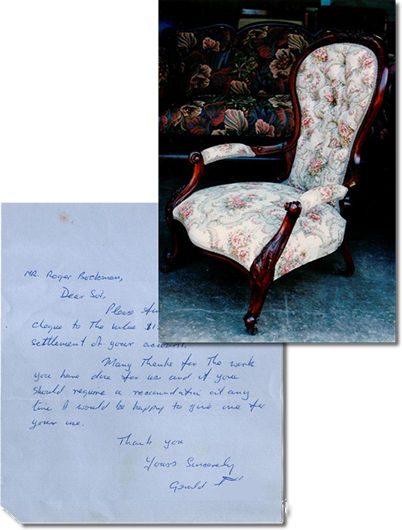 Mr. Roger Bockman,
Dear Sir,
Please
cheque to the value $1
settlement of your account.
Many Thanks for the work
you have done for us and if you
should require a recomendation at any
time I would be happy to give one for
your use.
Thank you
Yours Sincerely
Gerald